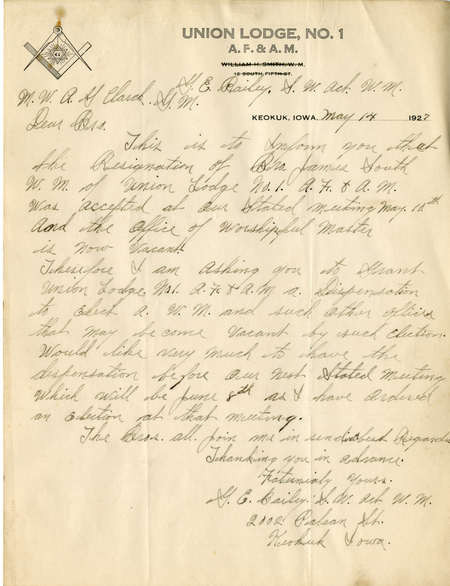 UNION LODGE, NO. 1
A. F. & A. M.
WILLIAM H. SMITH, W. M.
12 SOUTH FIFTH ST.
G. E. Bailey. S. W. act. W. M.
M. W. A G Clarck. G. M.
KEOKUK, IOWA, May 14 1927
Dear Bro.
This is to inform you that
the Resignation of Bro. James South
W. M. of Union Lodge No. 1. A. F. & A M.
was accepted at our Stated meeting May. 10th
And the office of Worshipful Master
is now Vacant.
Therefore I am asking you to Grant
Union Lodge. No1. A. F. & A. M a. Dispensation
to Elect a. W. M. and such other offices
that may be come vacant by such election.
Would like very much to have the
dispensation before our next Stated Meeting
Which will be June 8th as I have ordered
an Election at that meeting.
The Bros. all. join me in send best Regards
Thanking you in advance.
Yours.
G. E. Bailey. S. W. act W. M.
St.
Keokuk Iowa.